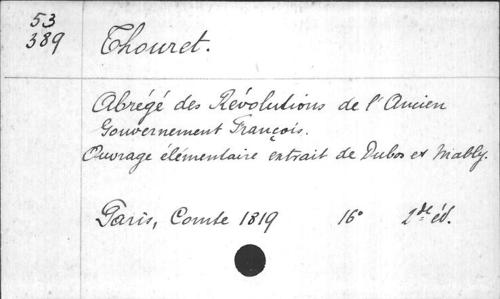 53
389
Thouret.
Abrégé des Révolutions de l'Ancien
Gouvernement François.
Ouvrage élémentaire extrait de Dubos et Mably.
Paris, Comte 1819 16° 2de éd.